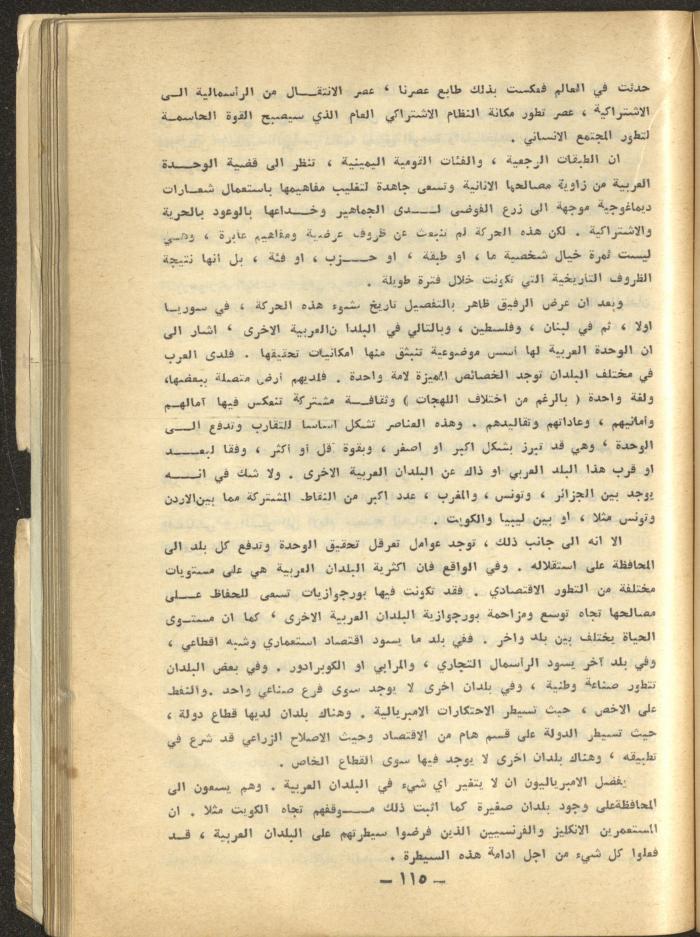 حدثت في العالم فعكست بذلك طابع عصرنا ، عصر الانتقـــال من الرأسمالية الـى
الاشتراكية ، عصر تطور مكانة النظام الاشتراكي العام الذي سيصبح القوة الحاسمـة
لتطور المجتمع الانساني .
ان الطبقات الرجعية ، والفئات القومية اليمينية ، تنظر الى قضية الوحــدة
العربية من زاوية مصالحها الانانية وتسعى جاهدة لتغليب مفاهيمها باستعمال شعـارات
ديماغوجية موجهة الى زرع الفوضى لـــدى الجماهير وخــداعها بالوعود بالحرية
والاشتراكية . لكن هذه الحركة لم تنبعث عن ظروف عرضية ومفاهيم عابرة ، وهـي
ليست ثمرة خيال شخصية ما ، او طبقة ، او حـــزب ، او فئة ، بل أنها نتيجة
الظروف التاريخية التي تكونت خلال فترة طويلة .
وبعد ان عرض الرفيق ظاهر بالتفصيل تاريخ نشوء هذه الحركة ، في سوريـا
اولا ، ثم في لبنان ، وفلسطين ، وبالتالي في البلدا ن العربية الاخرى ، اشار الى
ان الوحدة العربية لها أسس موضوعية تنبثق منها امكانيات تحقيقها . فلدى العرب
في مختلف البلدان توجد الخصائص المميزة لامة واحدة . فلديهم أرض متصلة ببعضها،
ولغة واحدة ( بالرغم من اختلاف اللهجات ) وثقافـــة مشتركة تنعكس فيها آمالهــم
وأمانيهم ، وعاداتهم وتقاليدهم . وهذه العناصر تشكل أساسا للتقارب وتدفع الـــى
الوحدة ، وهي قد تبرز بشكل اكبر او اصغر ، وبقوة أقل أو أكثر ، وفقا لبعـــد
او قرب هذا البلد العربي او ذاك عن البلدان العربية الاخرى . ولا شك في انـــه
يوجد بين الجزائر ، وتونس ، والمغرب ، عدد اكبر من النقاط المشتركة مما بين الاردن
وتونس مثلا ، او بين ليبيا والكويت .
الا انه الى جانب ذلك ، توجد عوامل تعرقل تحقيق الوحدة وتدفع كل بلد الى
المحافظة على استقلاله . وفي الواقع فان اكثرية البلدان العربية هي على مستويات
مختلفة من التطور الاقتصادي . فقد تكونت فيها بورجوازيات تسعى للحفاظ عـــلى
مصالحها تجاه توسع ومزاحمة بورجوازية البلدان العربية الاخرى ، كما ان مستــوى
الحياة يختلف بين بلد واخر . ففي بلد ما يسود اقتصاد استعماري وشبه اقطاعي ،
وفي بلد آخر يسود الرأسمال التجاري ، والمرابي او الكوبرادور . وفي بعض البلدان
تتطور صناعة وطنية ، وفي بلدان اخرى لا يوجد سوى فرع صناعي واحد .والنفط
على الاخص ، حيث تسيطر الاحتكارات الامبريالية . وهناك بلدان لديها قطاع دولة ،
حيث تسيطر الدولة على قسم هام من الاقتصاد وحيث الاصلاح الزراعي قد شرع في
تطبيقه ، وهناك بلدان اخرى لا يوجد فيها سوى القطاع الخاص .
يفضل الامبرياليون ان لا يتغير اي شيء في البلدان العربية . وهم يسعون الى
المحافظةعلى وجود بلدان صغيرة كما اثبت ذلك مـــوقفهم تجاه الكويت مثلا . ان
المستعمرين الانكليز والفرنسيين الذين فرضوا سيطرتهم على البلدان العربية ، قــد
فعلوا كل شيء من اجل ادامة هذه السيطرة .
– ١١٥ –